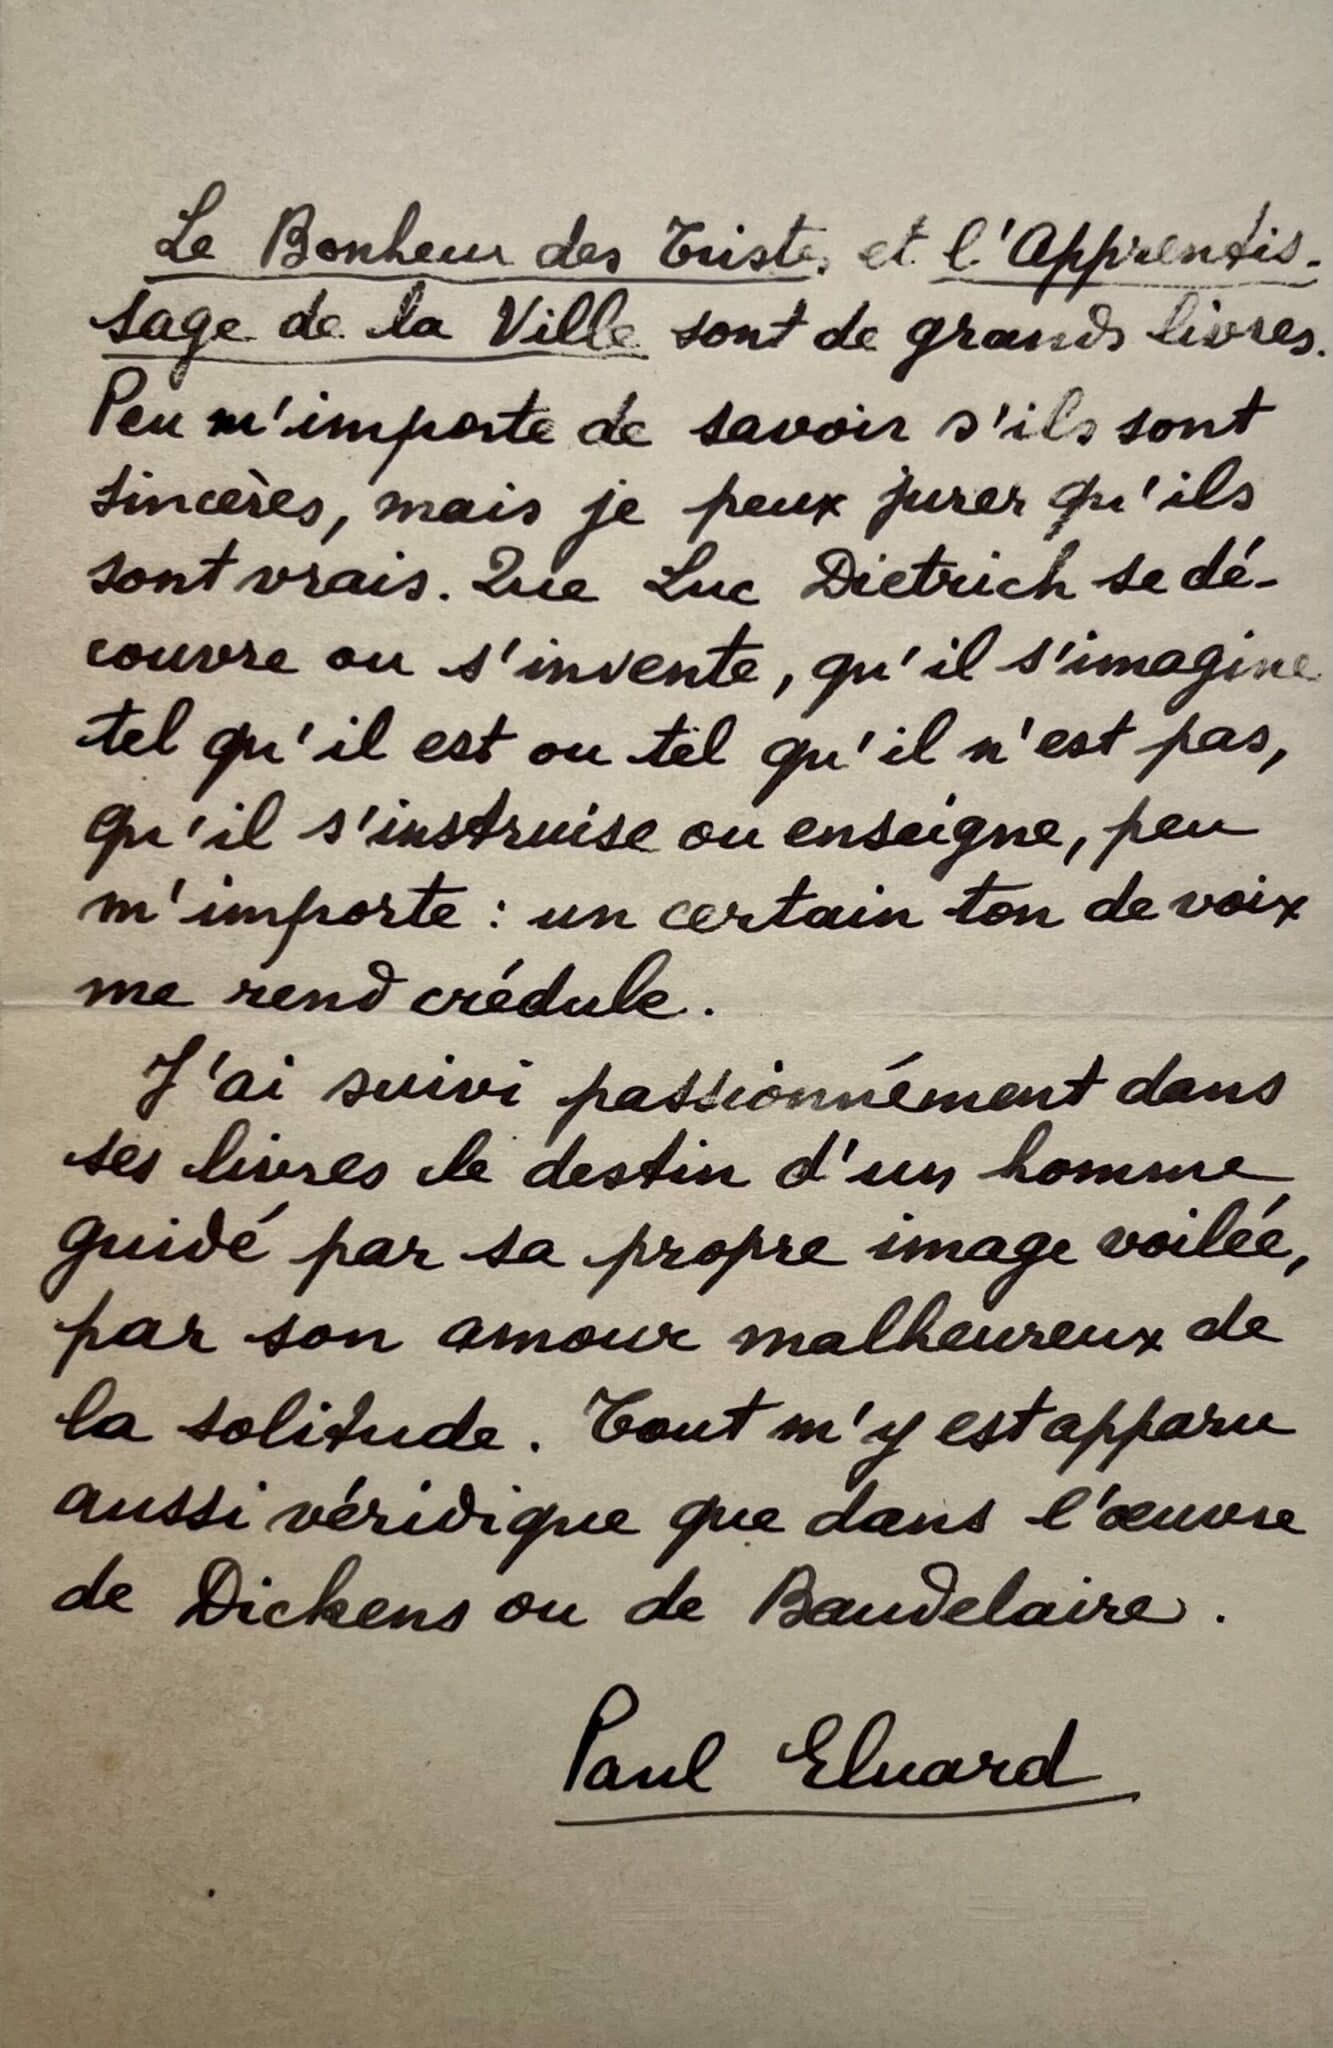 Le Bonheur des Tristes et l'Apprentis-
sage de la Ville sont de grands livres.
Peu m'importe de savoir s'ils sont
sincères, mais je peux jurer qu'ils
sont vrais. Que Luc Dietrich se dé-
couvre ou s'invente, qu'il s'imagine
tel qu'il est ou tel qu'il n'est pas,
qu'il s'instruise ou enseigne, peu
m'importe : un certain ton de voix
me rend crédule.
J'ai suivi passionnément dans
ses livres le destin d'un homme
guidé par sa propre image voilée,
par son amour malheureux de
la solitude. Tout m'y est apparu
aussi véridique que dans l'œuvre
de Dickens ou de Baudelaire.
Paul Eluard